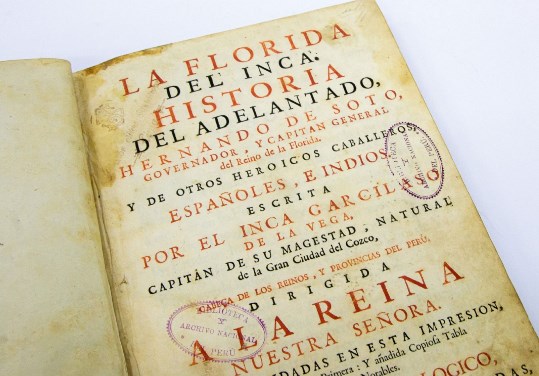 LA FLORIDA
DEL INCA.
HISTORIA
DEL ADELANTADO,
HERNANDO DE SOTO,
GOVERNADOR, Y CAPITAN GENERAL
del Reino de la Florida.
Y DE OTROS HEROICOS CABALLEROS,
ESPAÑOLES, E INDIOS.
ESCRITA
POR EL INCA GARCILASO
DE LA VEGA,
CAPITÁN DE SU MAGESTAD, NATURAL
de la Gran Ciudad del Cozco,
CABEÇA DE LOS REINOS, Y PROVINCIAS DEL PERÙ.
DIRIGIDA
A LA REINA
NUESTRA SEÑORA.
DADAS EN ESTA IMPRESION,
Primera: Y añadida Copiosa Tabla
Notables.
LOGICO,
BIBLIOTECA
Y
ARCHIVO NACIONAL
PERÚ